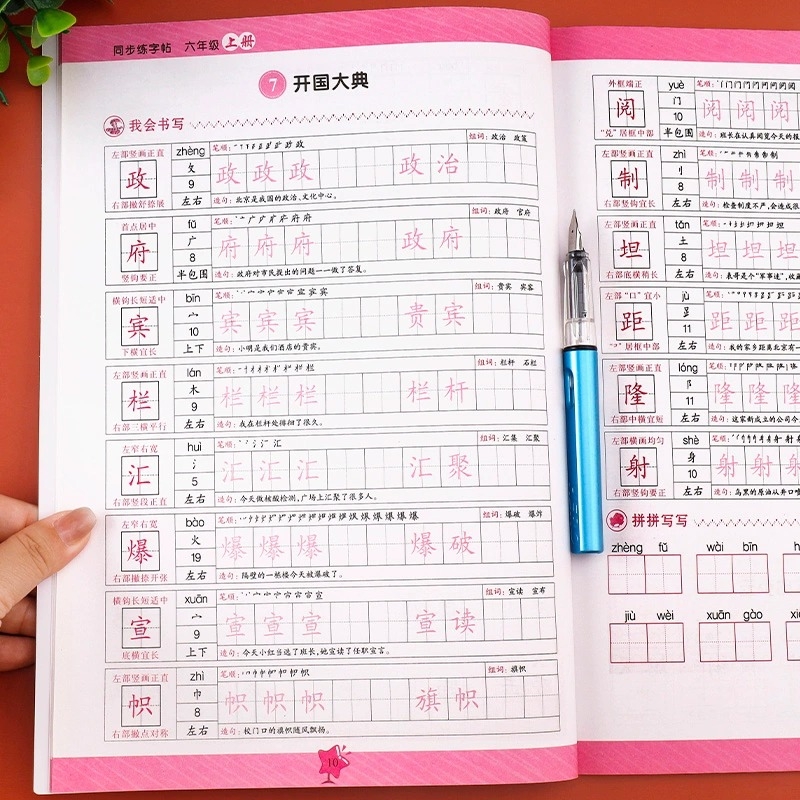 同步练字帖 六年级 上册
7 开国大典
我会书写
左部竖画正直 政 右部撇舒捺展
zhèng 攵 9 左右
笔顺： 政
组词：政治 政策
政 政 政 政 治
造句：北京是我国的政治、文化中心。
首点居中 府 竖钩要正
fǔ 广 8 半包围
笔顺： 府
组词：政府 官府
府 府 府 政 府
造句：政府对市民提出的问题一一做了答复。
横钩长短适中 宾 下横宜长
bīn 宀 10 上下
笔顺： 宾
组词：贵宾 宾客
宾 宾 宾 贵 宾
造句：小明是我们酒店的贵宾。
左部竖画正直 栏 右部三横平行
lán 木 9 左右
笔顺： 栏
组词：栏杆 石栏
栏 栏 栏 栏 杆
造句：我在栏杆处徘徊了很久。
左窄右宽 汇 右部竖段正直
huì 氵 5 左右
笔顺： 汇
组词：汇集 汇聚
汇 汇 汇 汇 聚
造句：今天做核酸检测，广场上汇聚了很多人。
左窄右宽 爆 右部撇捺开张
bào 火 19 左右
笔顺： 爆
组词：爆破 爆炸
爆 爆 爆 爆 破
造句：隔壁的一栋楼今天被爆破了。
横钩长短适中 宣 底横宜长
xuān 宀 9 上下
笔顺： 宣
组词：宣读 宣布
宣 宣 宣 宣 读
造句：今天小红当选了班长，她宣读了任职宣言。
左部竖画正直 帜 右部撇点对称
zhì 巾 8 左右
笔顺： 帜
组词：旗帜
帜 帜 帜 旗 帜
造句：校门口的旗帜随风飘扬。
10
外框端正 阅 “兑”居框中部
yuè 门 10 半包围
笔顺：
阅 阅 阅
造句：班长在认真阅览今天的报
左部竖画正直 制 右部竖钩宜长
zhì 刂 8 左右
笔顺： 制
制 制 制
造句：检查制度不严，会造成很
左部竖画正直 坦 右部底横稍长
tǎn 土 8 左右
笔顺： 坦
坦 坦 坦
造句：表哥是个“军事迷”，收藏
左部“口”宜小 距 居框中部
jù 11 左右
笔顺：
距 距 距
造句：我的家乡距离北京有一
左部竖画正直 隆 右部中横宜短
lóng 阝 11 左右
笔顺：
隆 隆 隆
造句：这家新成立的公司今
左部横画均匀 射 右部竖钩要正
shè 身 10 左右
笔顺： 射
射 射 射
造句：乌黑的原油从井口喷
拼拼写写
zhèng fǔ wài bīn h
jiù wèi xuān gào xi